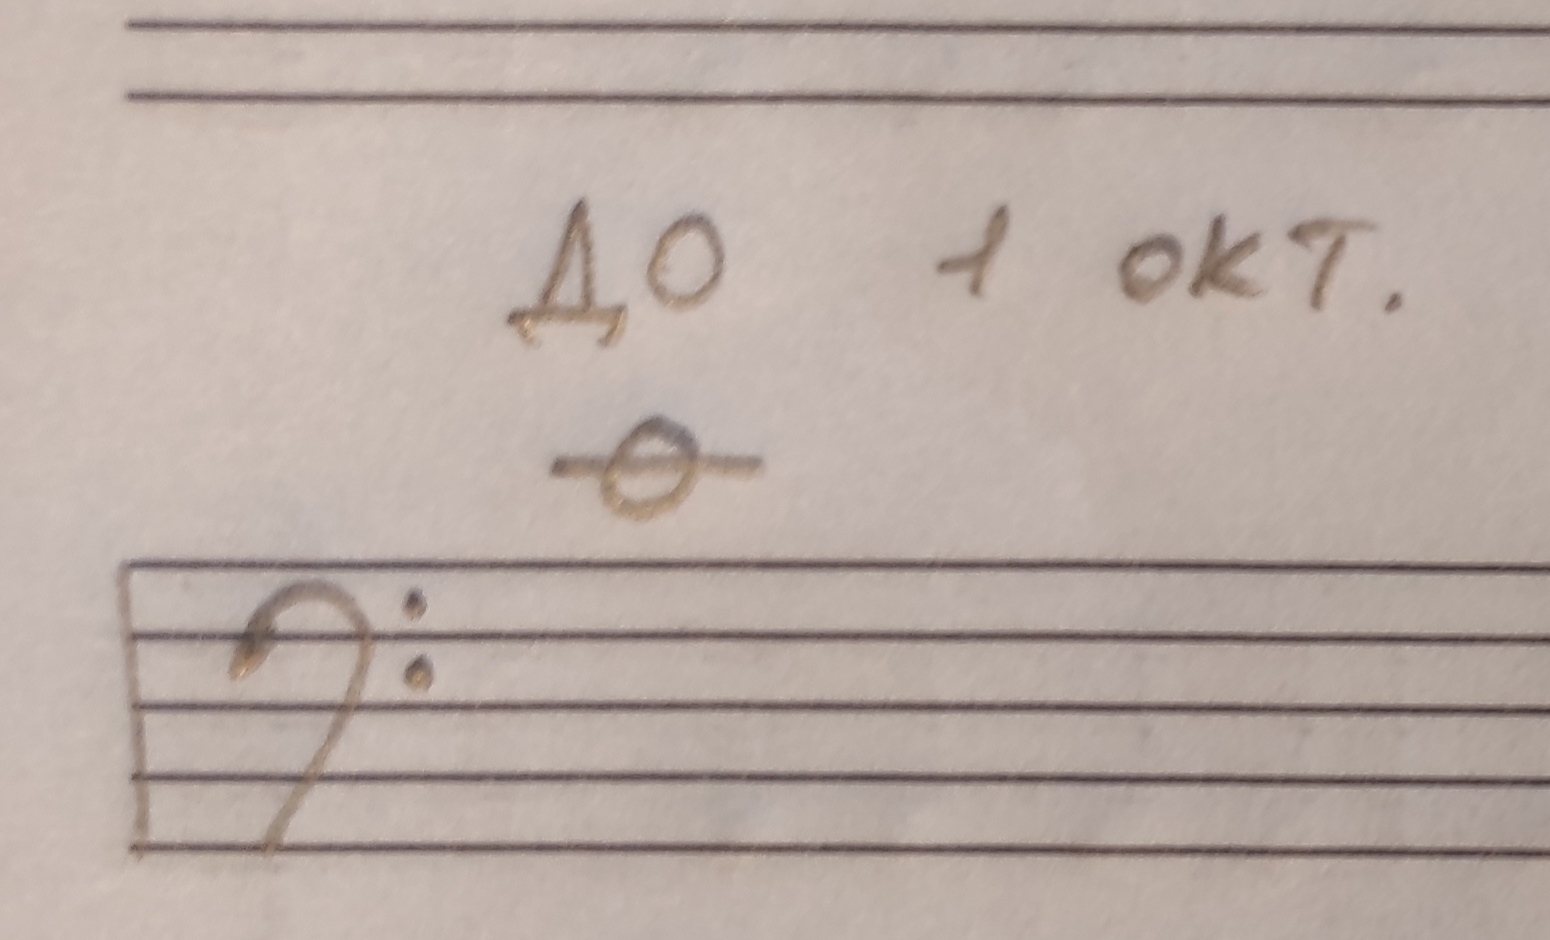 ДО 1 окт.